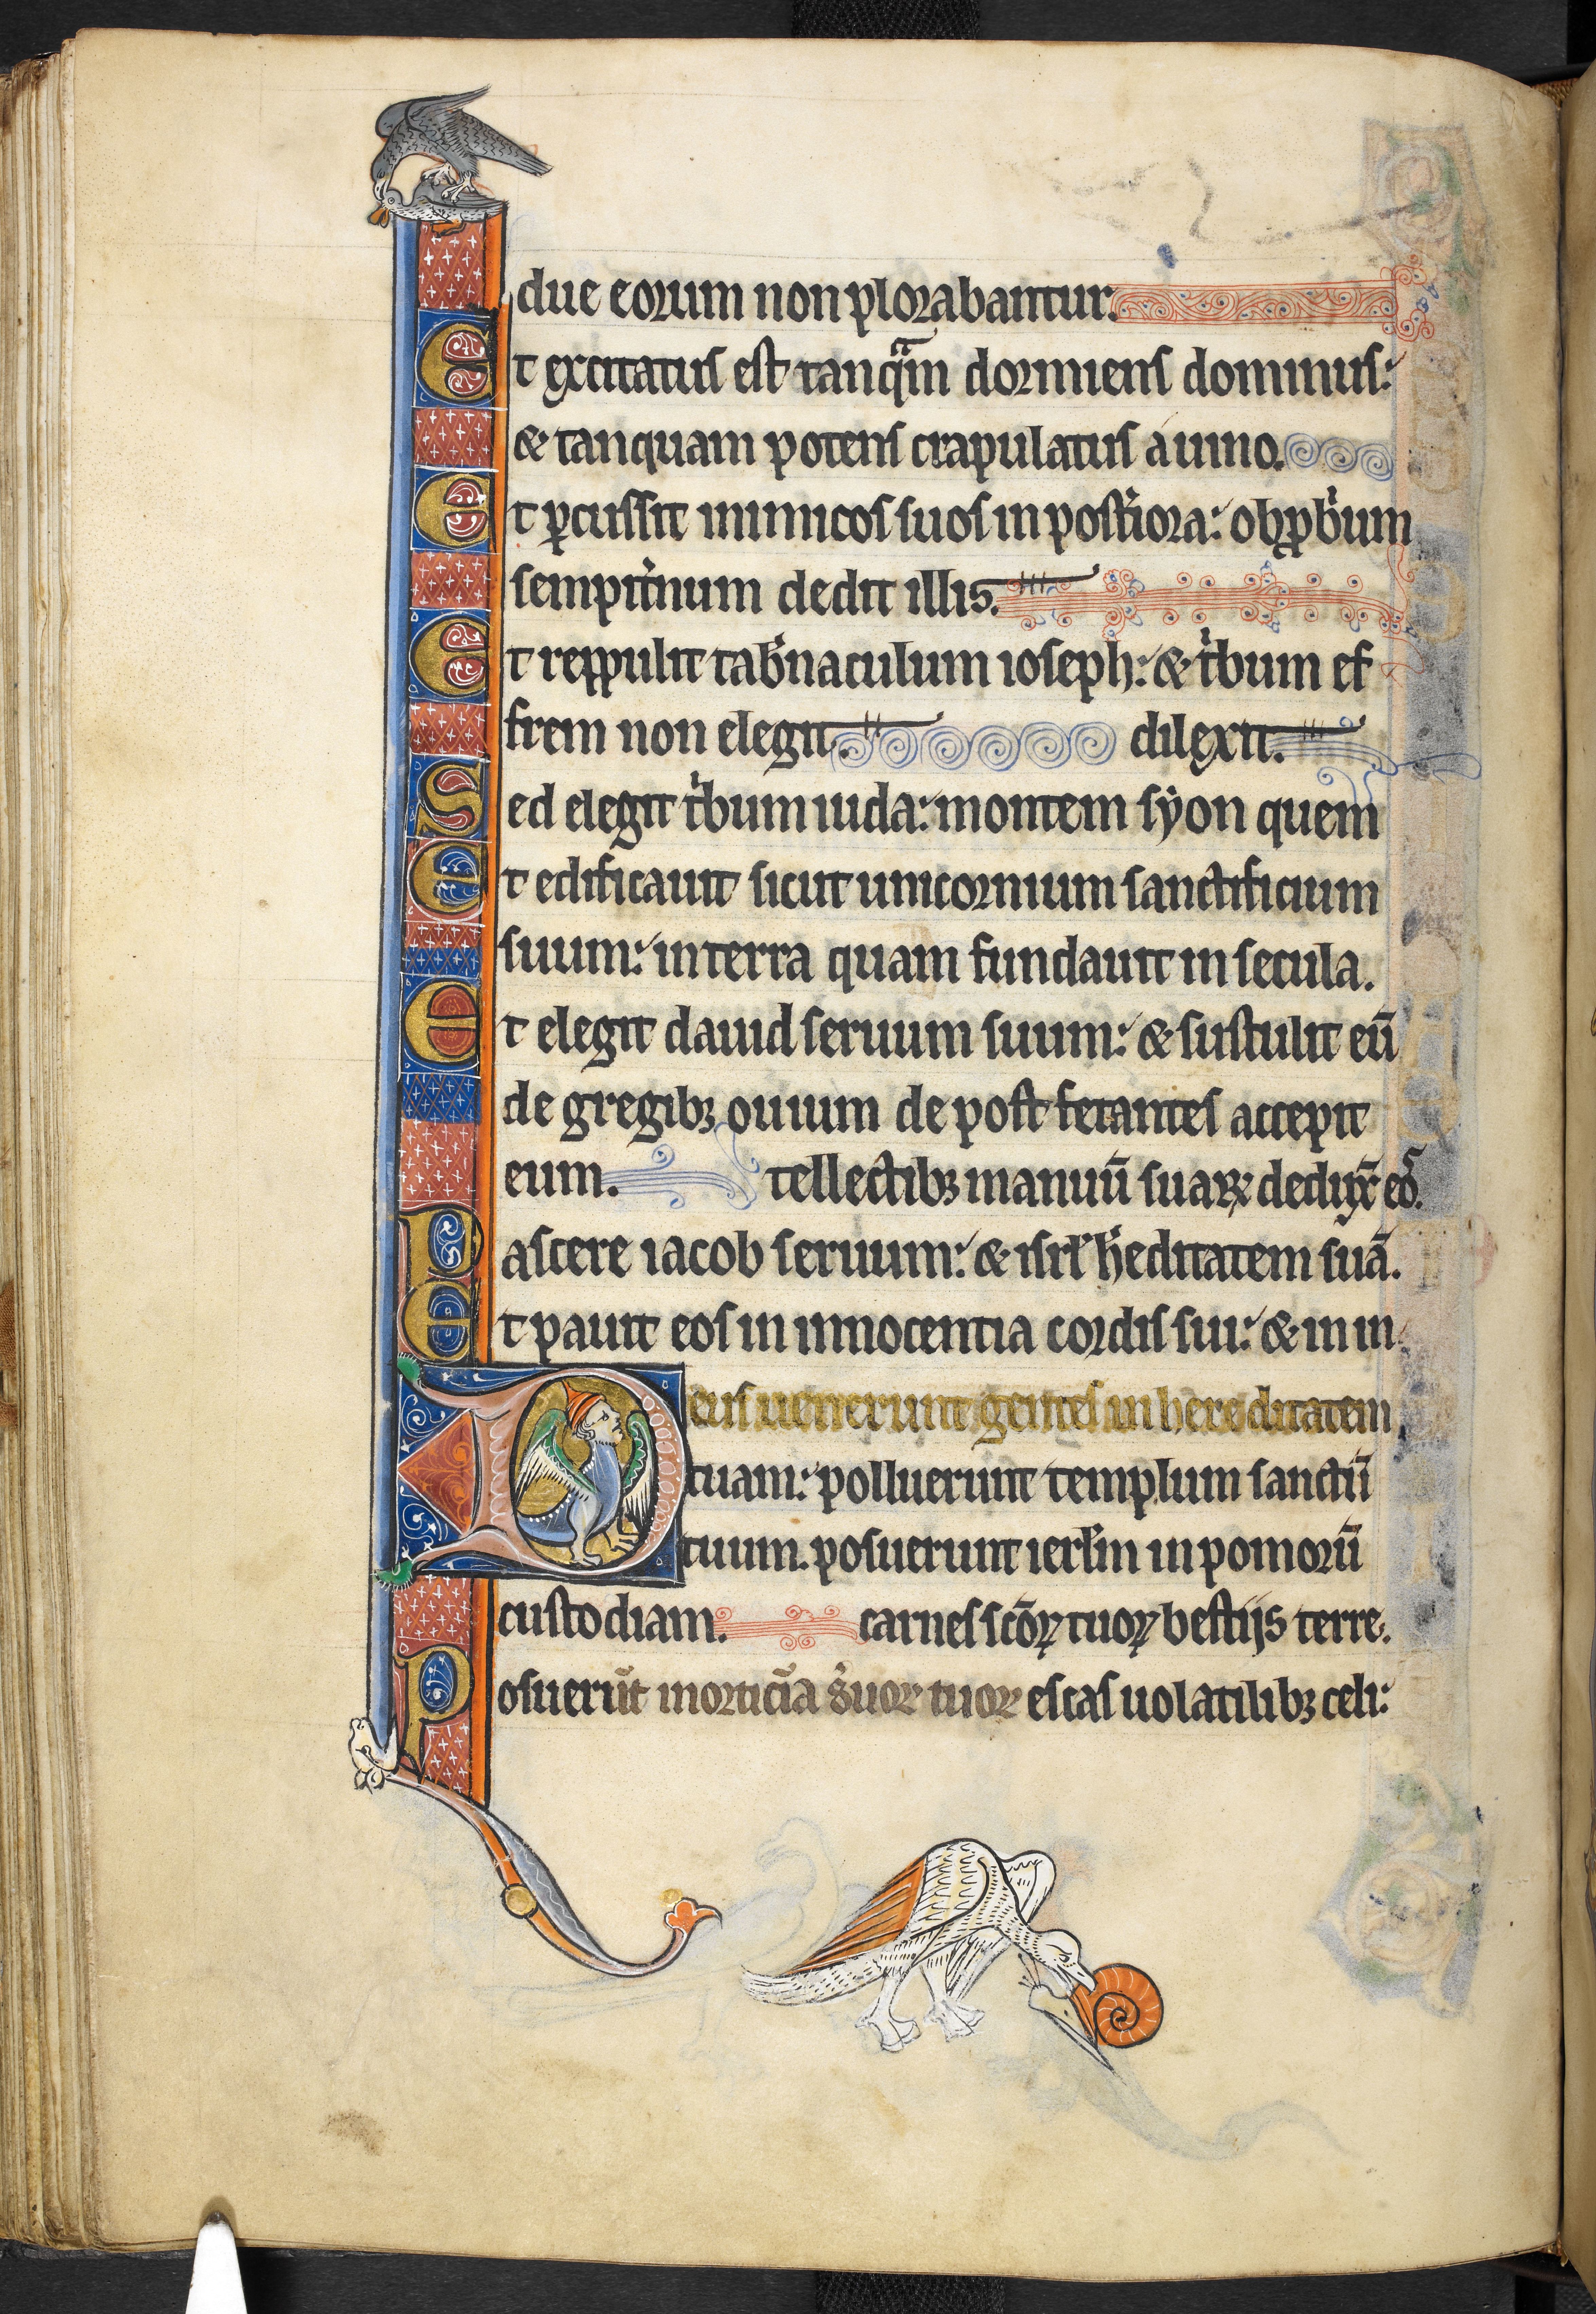 due eorum non plorabantur.
Et excitatus est tanqᵃm dormiens dominus:
& tanquam potens crapulatus a uino.
Et ꝑcussit inimicos suos in postͥiora: obꝓbͥum
sempitͥnum dedit illis.
Et reppulit tabͥnaculum ioseph: & tͥbum ef
frem non elegit. dilexit.
Sed elegit tͥbum iuda: montem syon quem
Et edificauit sicut unicornium sanctificium
suum: in terra quam fundauit in secula.
Et elegit dauid seruum suum: & sustulit eū
de gregibꝫ ouium de post fetantes accepit
eum. tellectibꝫ manuū suaꝝ deduxͭ eoˢ.
Pascere iacob seruum: & isrl̓ h̓editatem suā.
Et pauit eos in innocentia cordis sui: & in in
Deus uenerunt gentes in hereditatem
tuam: polluerunt templum sanctū
tuum. posuerunt ierl̓m in pomorū
custodiam. carnes scōꝝ tuoꝝ bestijs terre.
Posuerūt morticīa s̓uoꝝ tuoꝝ escas uolatilibꝫ celi: